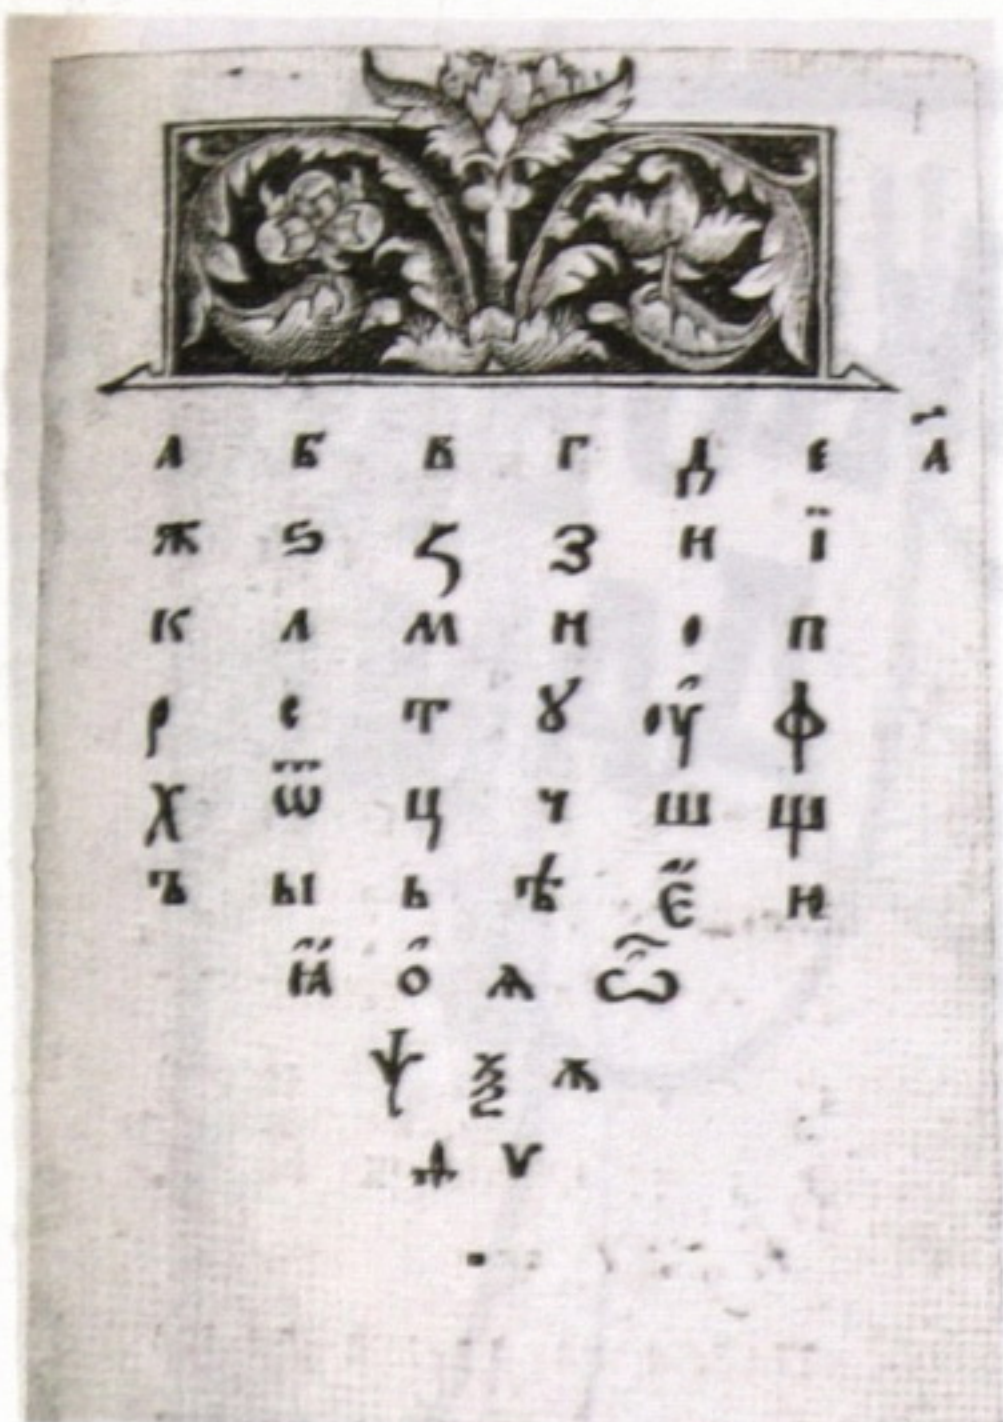 а б в г д е а҃
ж ѕ ꙃ з и ї
к л м н о п
р с т ꙋ оу҆ ф
х ѿ ц ч ш щ
ъ ы ь ѣ є҆́ ю
ꙗ҆́ о҆ ѧ ѽ
ѱ ѯ ѫ
ѳ ѵ